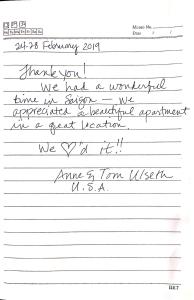 Memo No.
Mo Tu We Th Fr Sa Su
Date / /
24-28 February 2019
Thank you!
We had a wonderful
time in Saigon — we
appreciated a beautiful apartment
in a great location.
We ♡'d it!!
Anne & Tom Ulseth
U.S.A.